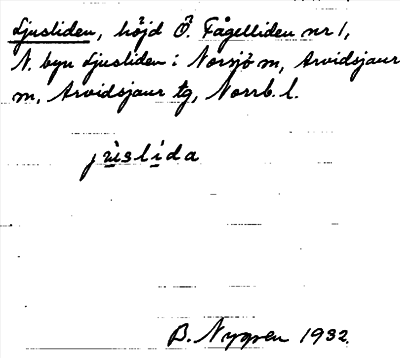 Ljusliden, höjd Ö. Fågelliden nr 1,
N. byn Ljusliden i Norsjö m, Arvidsjaur
m, Arvidsjaur tg, Norrb. l.
jùslịda
B. Nygren 1932.